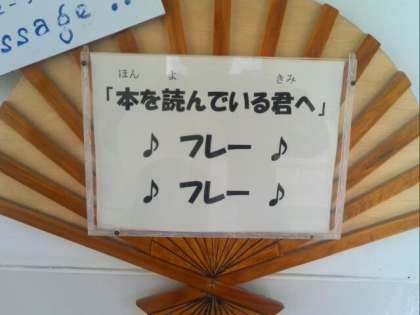 ssage..
ほん よ きみ
「本を読んでいる君へ」
♪ フレー ♪
♪ フレー ♪